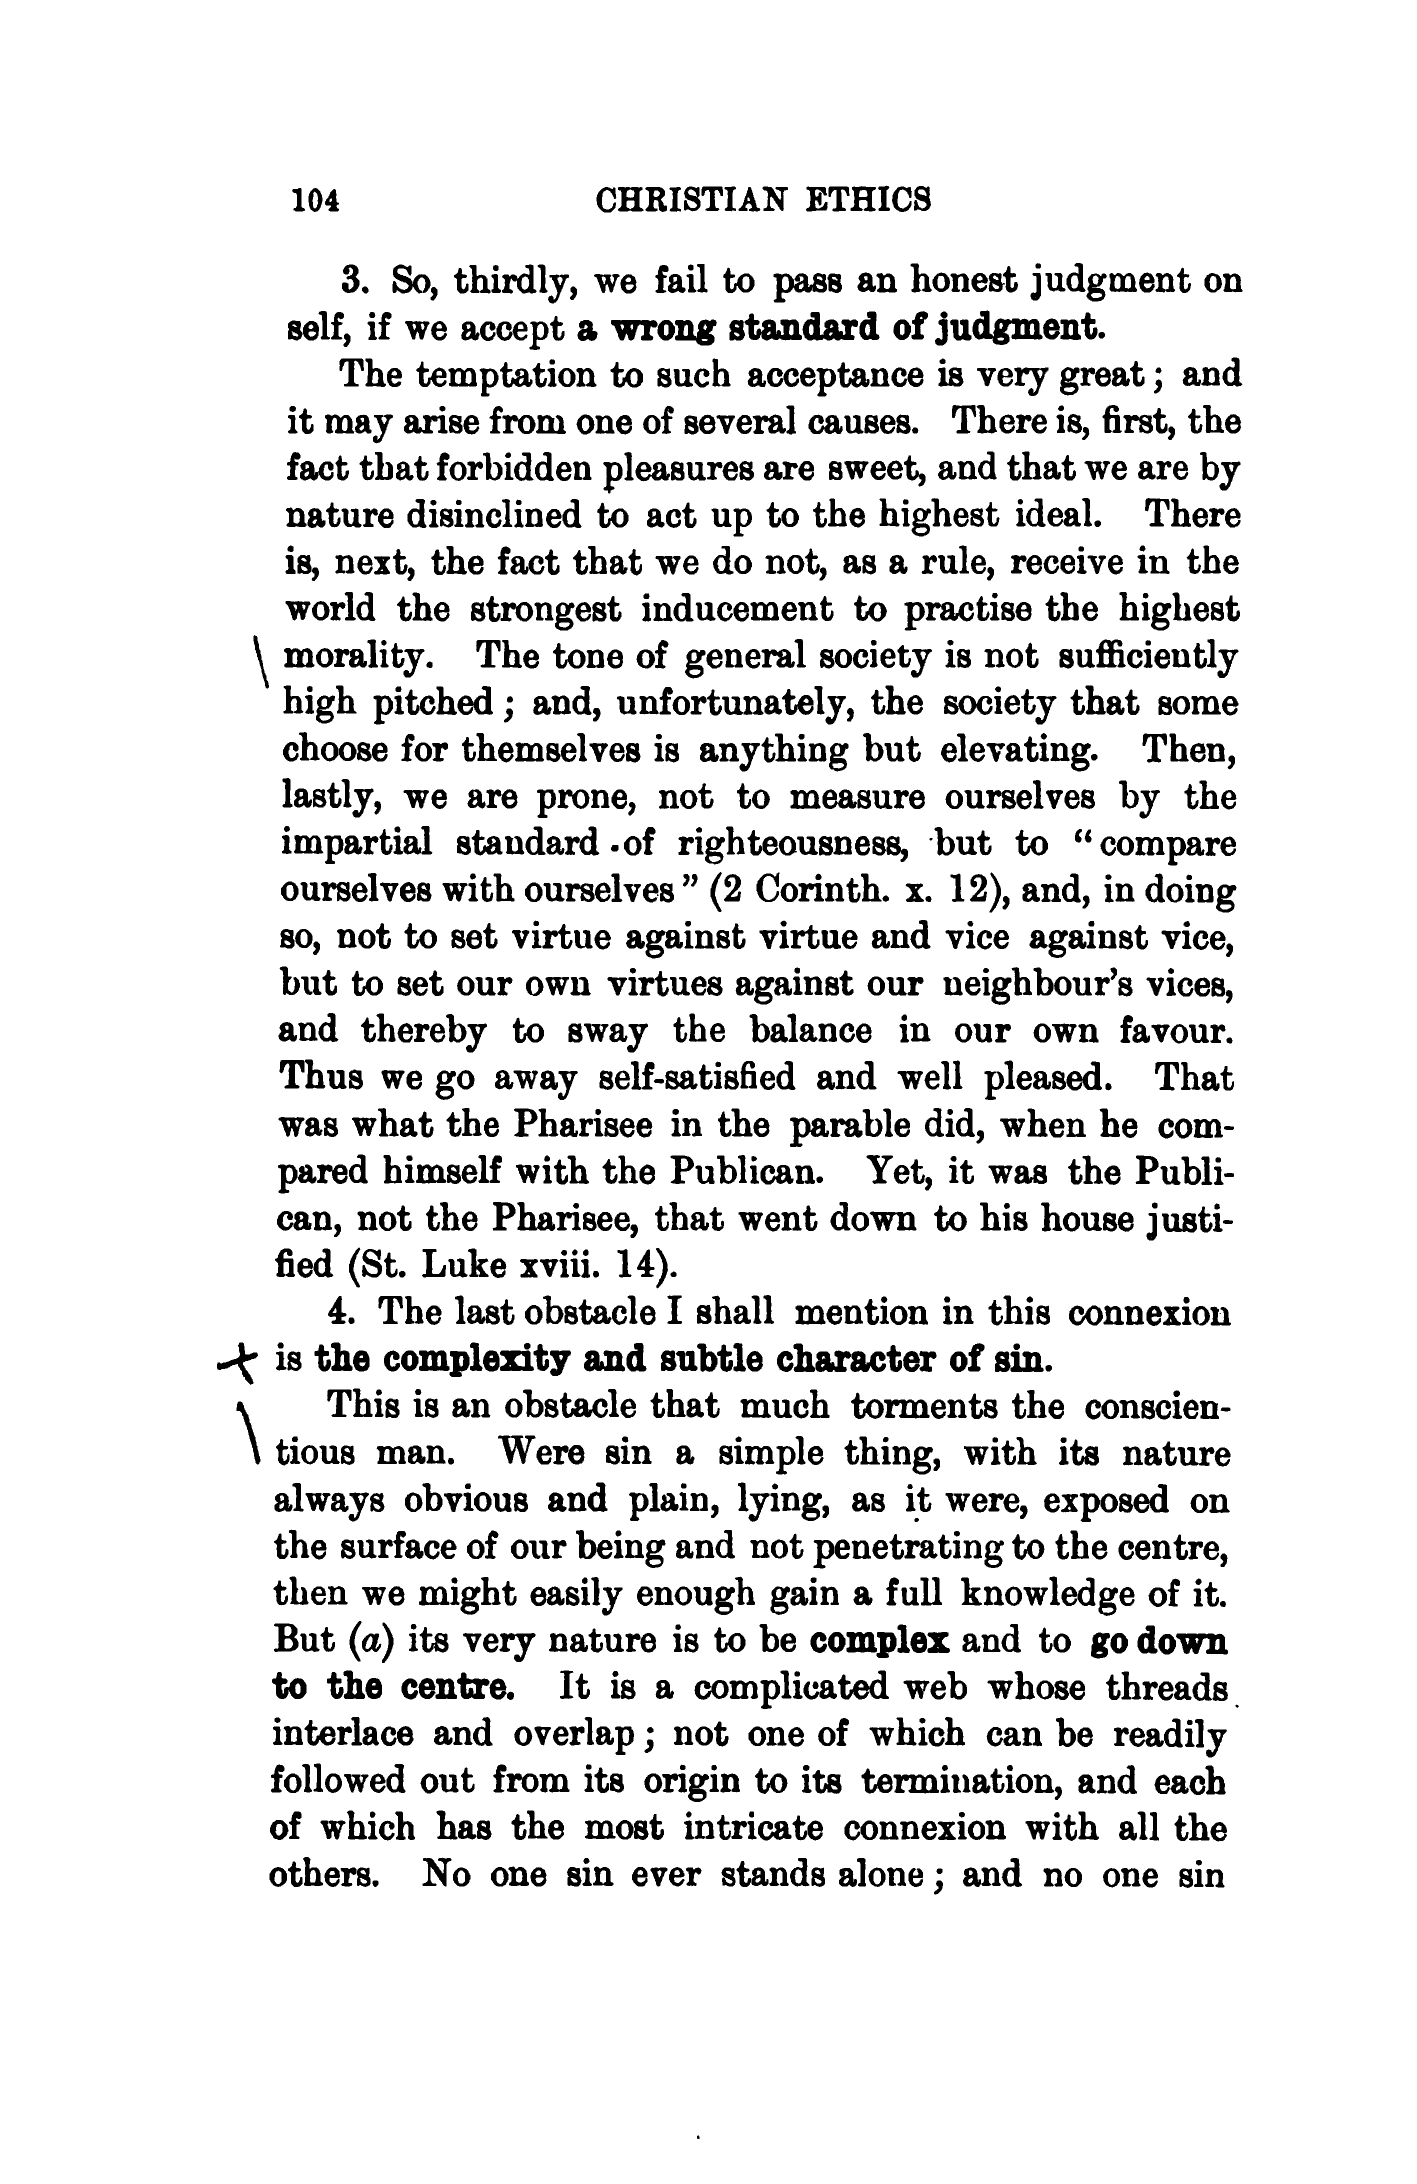 104 CHRISTIAN ETHICS
3. So, thirdly, we fail to pass an honest judgment on
self, if we accept a wrong standard of judgment.
The temptation to such acceptance is very great; and
it may arise from one of several causes. There is, first, the
fact that forbidden pleasures are sweet, and that we are by
nature disinclined to act up to the highest ideal. There
is, next, the fact that we do not, as a rule, receive in the
world the strongest inducement to practise the highest
morality. The tone of general society is not sufficiently
high pitched; and, unfortunately, the society that some
choose for themselves is anything but elevating. Then,
lastly, we are prone, not to measure ourselves by the
impartial standard of righteousness, but to “compare
ourselves with ourselves” (2 Corinth. x. 12), and, in doing
so, not to set virtue against virtue and vice against vice,
but to set our own virtues against our neighbour’s vices,
and thereby to sway the balance in our own favour.
Thus we go away self-satisfied and well pleased. That
was what the Pharisee in the parable did, when he com-
pared himself with the Publican. Yet, it was the Publi-
can, not the Pharisee, that went down to his house justi-
fied (St. Luke xviii. 14).
4. The last obstacle I shall mention in this connexion
is the complexity and subtle character of sin.
This is an obstacle that much torments the conscien-
tious man. Were sin a simple thing, with its nature
always obvious and plain, lying, as it were, exposed on
the surface of our being and not penetrating to the centre,
then we might easily enough gain a full knowledge of it.
But (a) its very nature is to be complex and to go down
to the centre. It is a complicated web whose threads
interlace and overlap; not one of which can be readily
followed out from its origin to its termination, and each
of which has the most intricate connexion with all the
others. No one sin ever stands alone; and no one sin